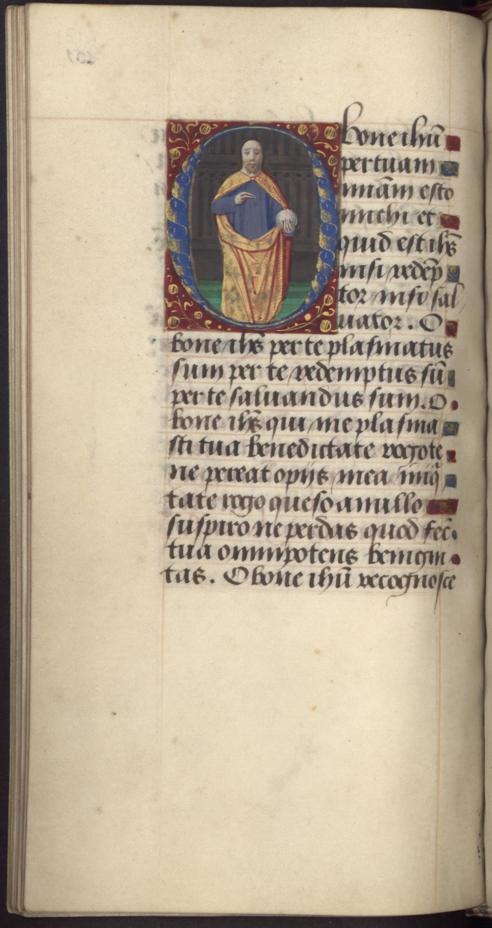 bone ihũ
per tuam
miãm esto
michi et
quid est ihs̃
nisi redẽp
tor nisi sal
uator. O
bone ihs̃ per te plasmatus
sum per te redemptus sũ
per te saluandus sum. O
bone ihs̃ qui me plasma
sti tua benedictate rogo te
ne pereat opus mea iniq̃
tate rogo queso anullo
suspiro ne perdas quod fec̃
tua omnipotens benigni
tas. O bone ihũ recognosce